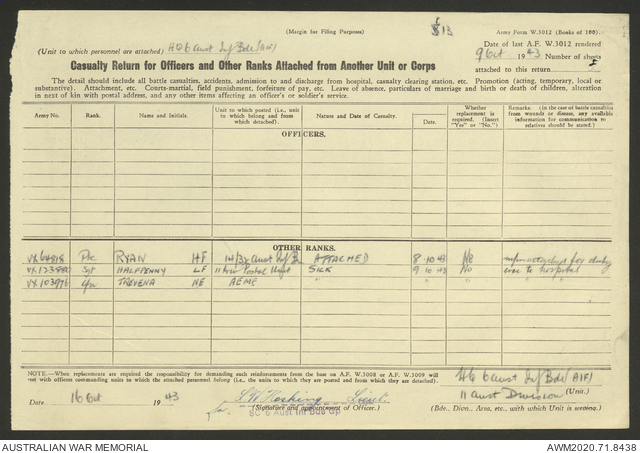 (Margin for Filing Purposes)
Army Form W.3012 (Books of 100).
(Unit to which personnel are attached) HQ 6 Aust Inf Bde (AIF)
Date of last A.F. W.3012 rendered
9 Oct 1943 Number of sheets
Casualty Return for Officers and Other Ranks Attached from Another Unit or Corps
attached to this return
The detail should include all battle casualties, accidents, admission to and discharge from hospital, casualty clearing station, etc. Promotion (acting, temporary, local or
substantive). Attachment, etc. Courts-martial, field punishment, forfeiture of pay, etc. Leave of absence, particulars of marriage and birth or death of children, alteration
in next of kin with postal address, and any other items affecting an officer's or soldier's service.
Army No. Rank. Name and Initials. Unit to which posted (i.e., unit to which belong and from which detached). Nature and Date of Casualty. Date. Whether replacement is required. (Insert "Yes" or "No.") Remarks. (In the case of battle casualties from wounds or disease, any available information for communication to relatives should be stated.)
OFFICERS.
OTHER RANKS.
VX64818 Pte RYAN HF 14/32 Aust Inf Bn ATTACHED 8.10.43 No for duty
Sgt HALFPENNY LF 11 Aust Postal Unit SICK 9 10 43 No to hospital
VX103976 Cfn TREVENA HE AEME " " " "
NOTE.—When replacements are required the responsibility for demanding such reinforcements from the base on A.F. W.3008 or A.F. W.3009 will
rest with officers commanding units in which the attached personnel belong (i.e., the units to which they are posted and from which they are detached).
HQ 6 Aust Inf Bde (AIF)
(Unit.)
Date 16 Oct 1943
Lieut.
for (Signature and appointment of Officer.)
SC 6 Aust Inf Bde Gp
11 Aust Division
(Bde., Divn., Area, etc., with which Unit is serving.)
AUSTRALIAN WAR MEMORIAL
AWM2020.71.8438